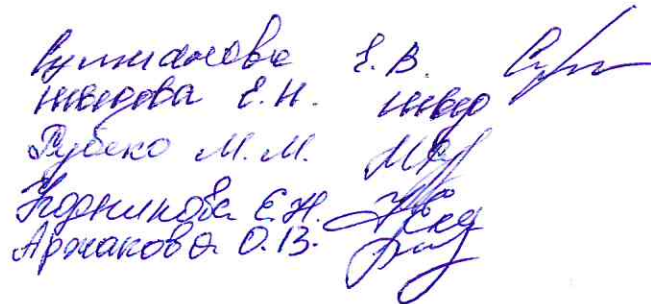 Сулжанова Е.В.
Шведова Е.Н.
Рубеко М.М.
Кормикова Е.Н.
Аржакова О.В.